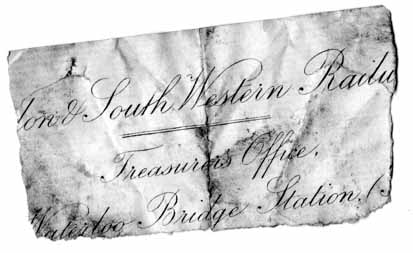 don & South Western Railw
Treasurer's Office.
Waterloo Bridge Station,